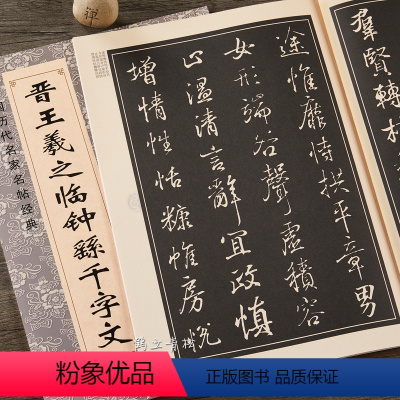 羣賢轉
途惟靡恃拱平章男
女形端谷聲虛積容
心温清言辭宜政慎
增情性恬糠帷房悦
晋王羲之临钟繇千字文
历代名家名帖经典
禅
粉象优品